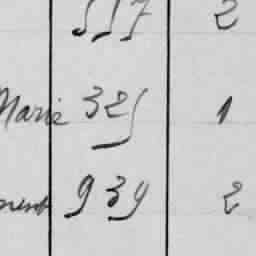 557 2
Marie 325 1
939 2